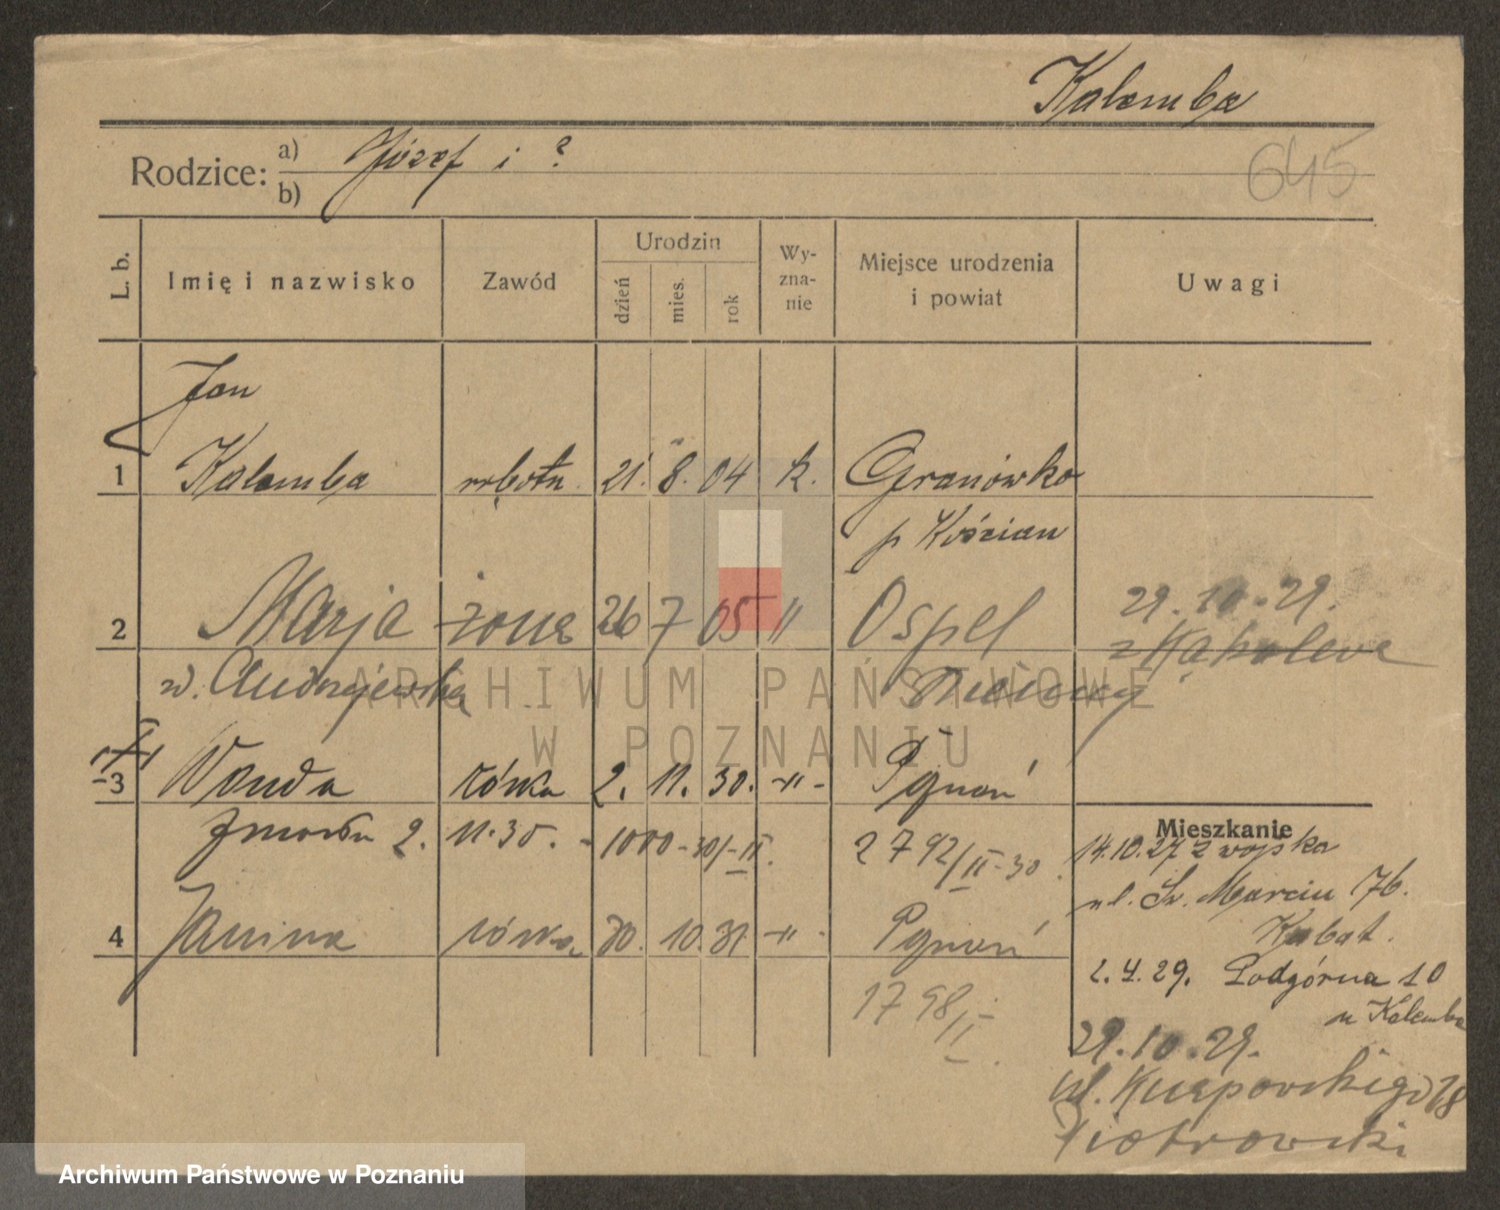 Kalemba
Rodzice: a) Józef i ?
b)
645
L. b.
Imię i nazwisko
Zawód
Urodzin
dzień
mies.
rok
Wy-
zna-
nie
Miejsce urodzenia
i powiat
Uwagi
Jan
1 Kalemba robotn. 21. 8. 04 k. Granówko
p Kościan
2 Marja żona 26 7 05 " Ospel 29.10.29.
z Kąkolewa
z d. Andrzejewska Niemcy
3 Wanda córka 2. 11. 30. -"- Poznań
zmarła 2. 11.30. - 1000-30/-II. 2792/II-30.
4 Janina córka 30. 10. 31. -"- Poznań
1798/II
Mieszkanie
14.10.27 z wojska
ul. Św. Marcin 76.
Kubat.
2.4.29. Podgórna 10
u Kalemba
29.10.29.
ul. Kurpowskiego 18
Piotrowski
ARCHIWUM PAŃSTWOWE
W POZNANIU
Archiwum Państwowe w Poznaniu